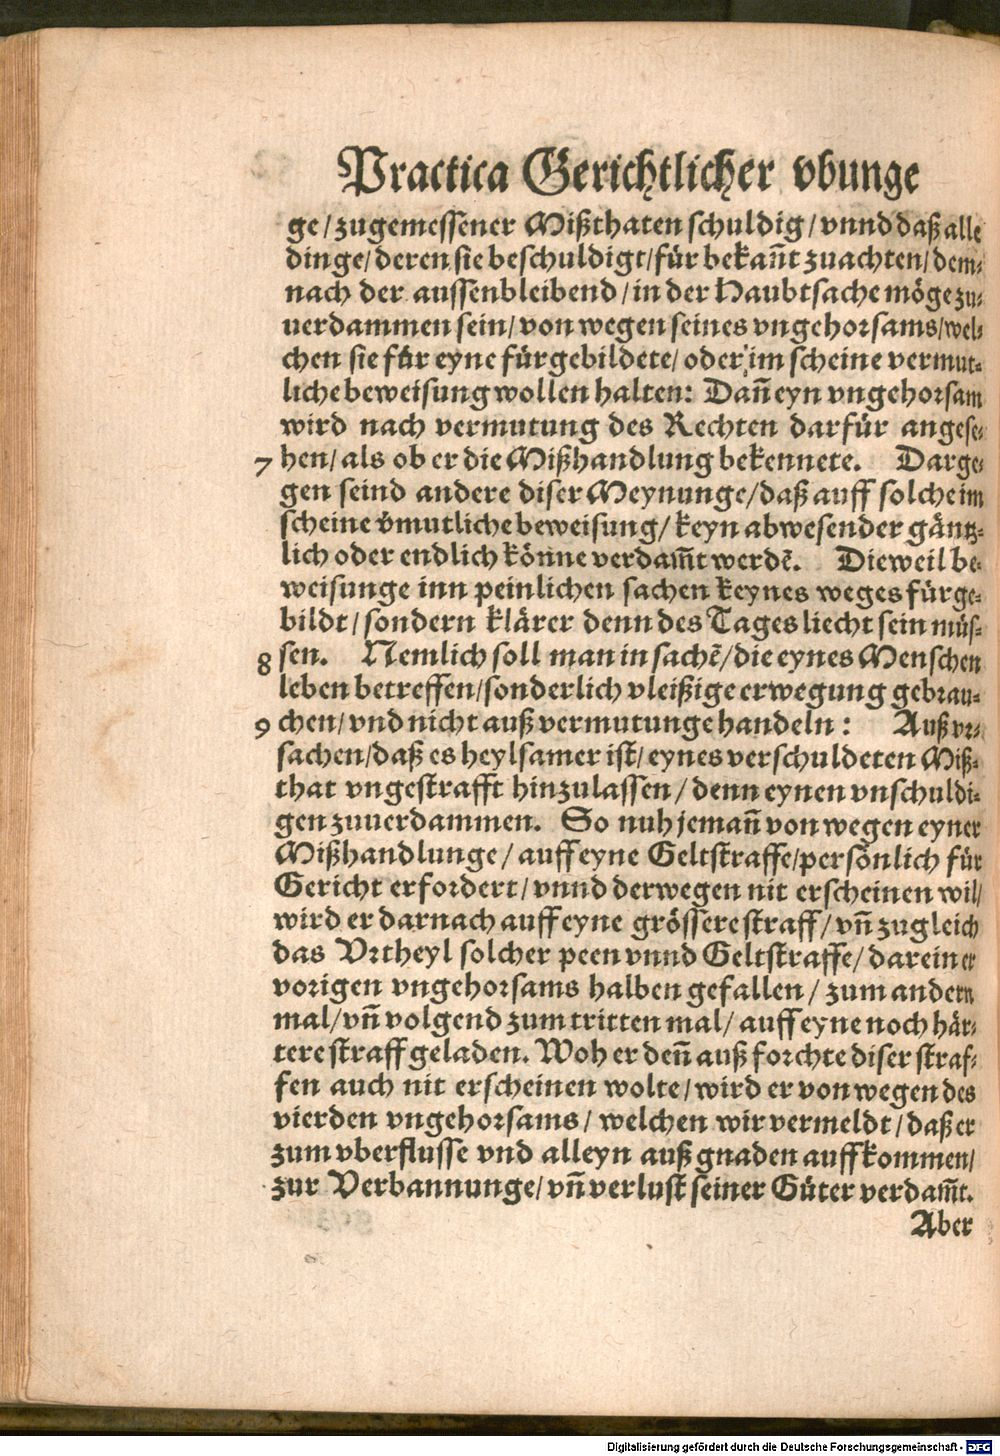 Practica Gerichtlicher vbunge
ge/zugemessener Mißthaten schuldig/vnnd daß alle
dinge/deren sie beschuldigt/für bekañt zuachten/dem⸗
nach der aussenbleibend/in der Haubtsache möge zu⸗
uerdammen sein/von wegen seines vngehorsams/wel⸗
chen sie für eyne fürgebildete/oder im scheine vermut⸗
liche beweisung wollen halten: Dañ eyn vngehorsam
wird nach vermutung des Rechten darfür angese⸗
7 hen/als ob er die Mißhandlung bekennete. Darge⸗
gen seind andere diser Meynunge/daß auff solche im
scheine v̈mutliche beweisung/keyn abwesender gäntz⸗
lich oder endlich könne verdam̃t werdẽ. Dieweil be⸗
weisunge inn peinlichen sachen keynes weges fürge⸗
bildt/sondern klärer denn des Tages liecht sein müs⸗
8 sen. Nemlich soll man in sachẽ/die eynes Menschen
leben betreffen/sonderlich vleißige erwegung gebrau⸗
9 chen/vnd nicht auß vermutunge handeln: Auß vr⸗
sachen/daß es heylsamer ist/eynes verschuldeten Miß⸗
that vngestrafft hinzulassen/denn eynen vnschuldi⸗
gen zuuerdammen. So nuh jemañ von wegen eyner
Mißhandlunge/auff eyne Geltstraffe/persönlich für
Gericht erfordert/vnnd derwegen nit erscheinen wil/
wird er darnach auff eyne grössere straff/vñ zugleich
das Vrtheyl solcher peen vnnd Geltstraffe/darein er
vorigen vngehorsams halben gefallen/zum andern
mal/vñ volgend zum tritten mal/auff eyne noch här⸗
tere straff geladen. Woh er deñ auß forchte diser straf⸗
fen auch nit erscheinen wolte/wird er von wegen des
vierden vngehorsams/welchen wir vermeldt/daß er
zum vberflusse vnd alleyn auß gnaden auffkommen/
zur Verbannunge/vñ verlust seiner Güter verdam̃t.
Aber
Digitalisierung gefördert durch die Deutsche Forschungsgemeinschaft - DFG